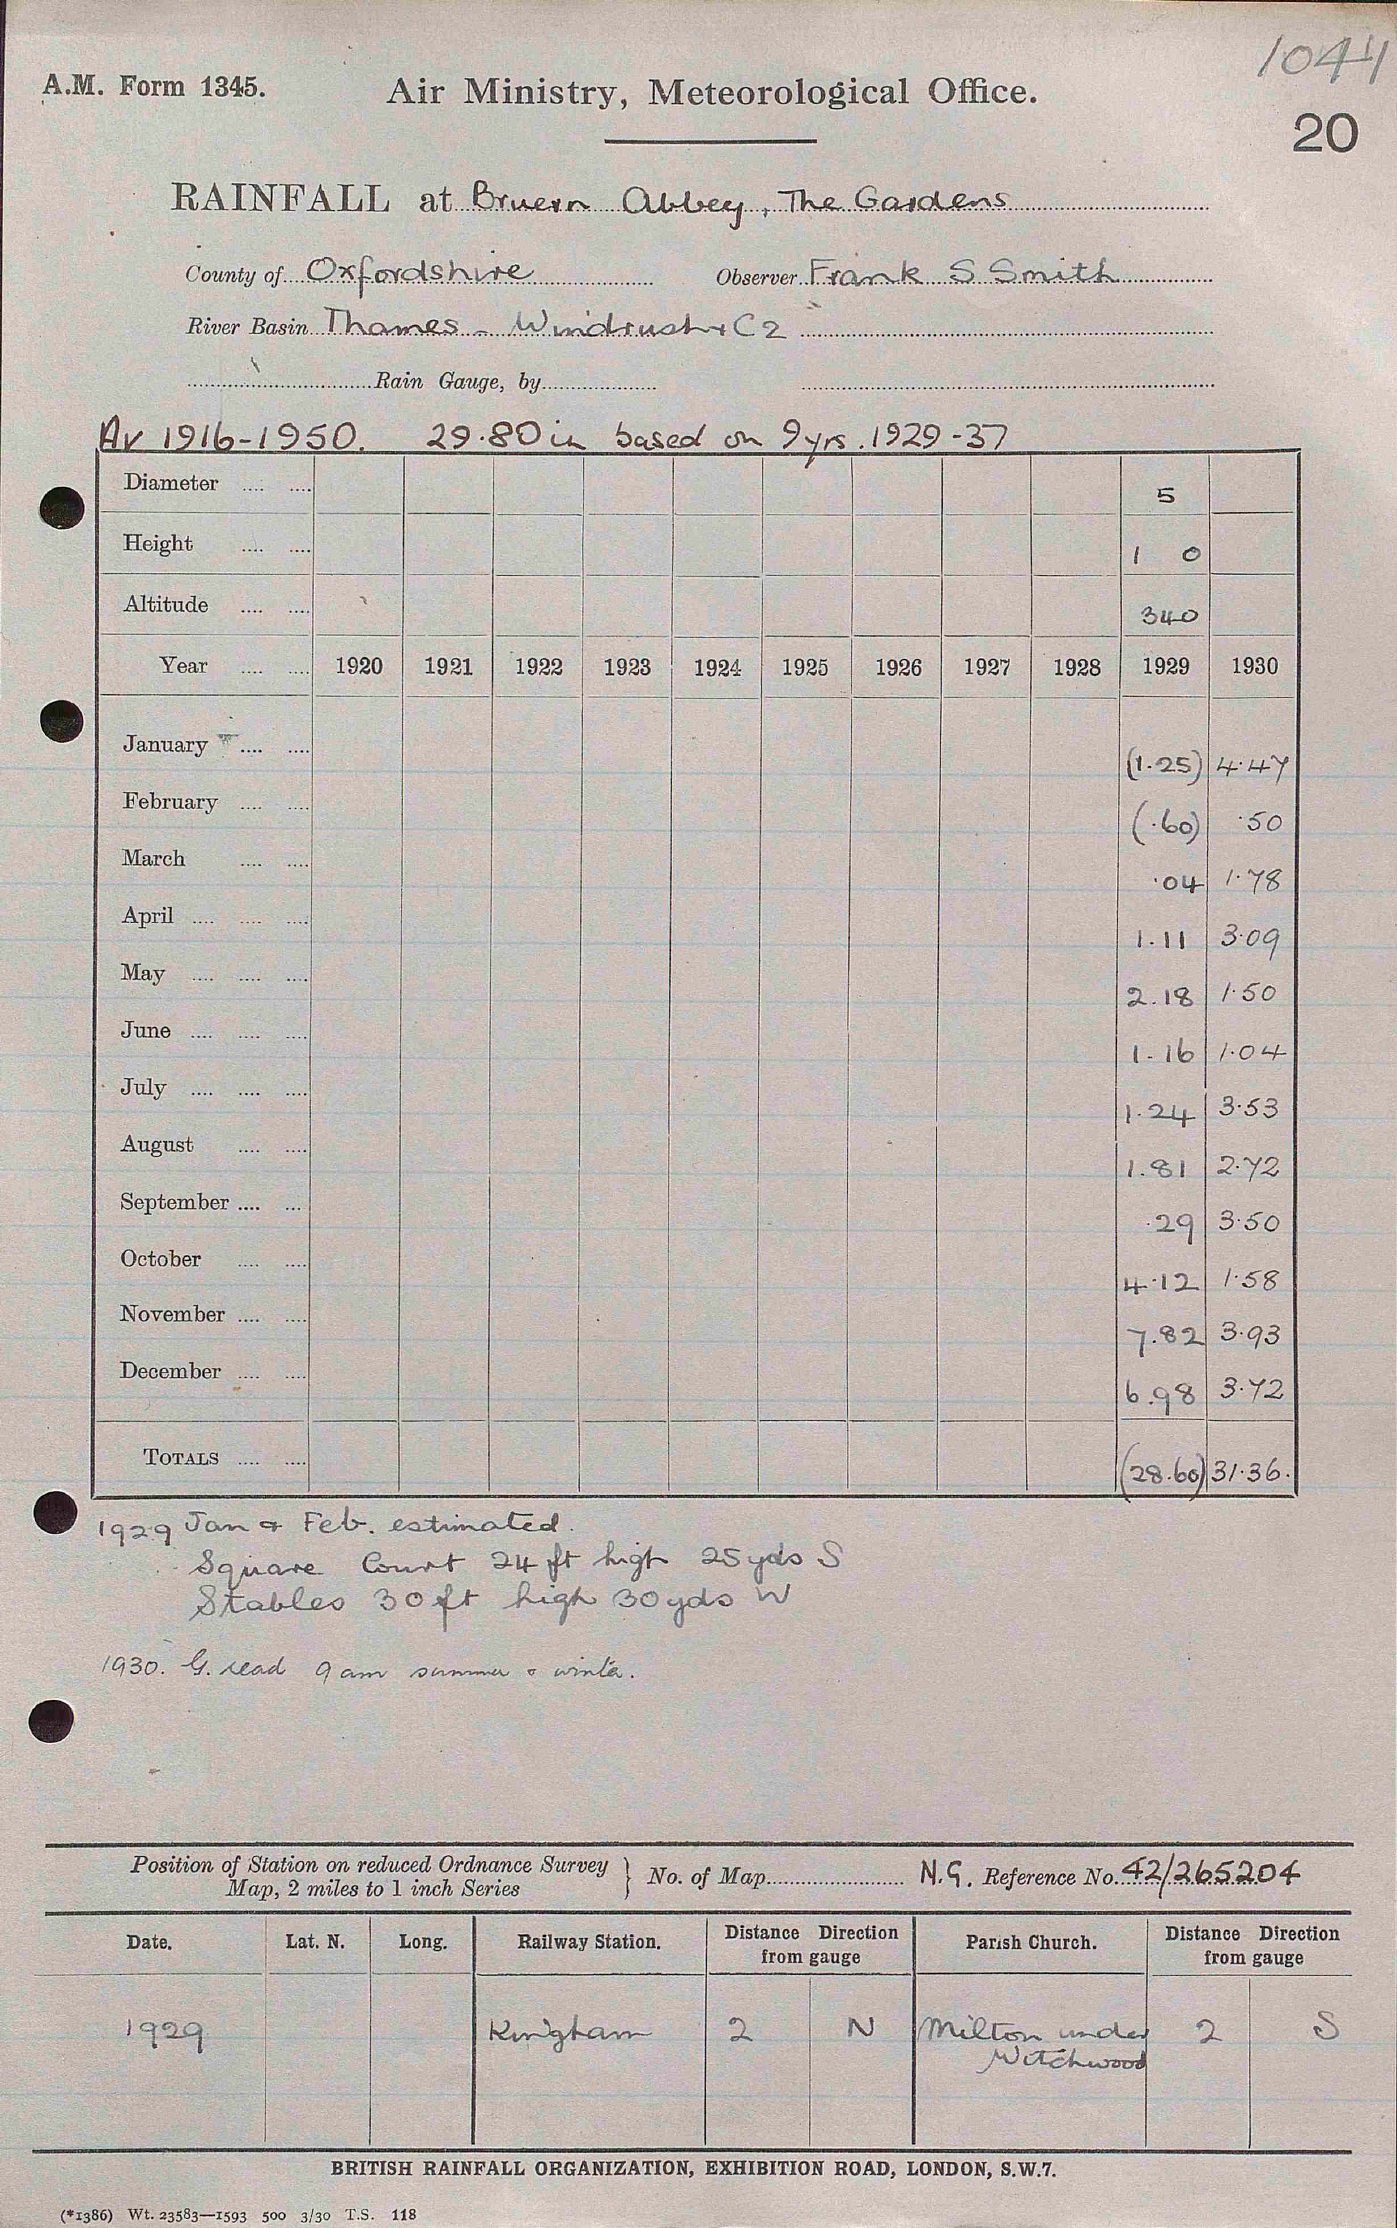 1044
A.M. Form 1345.
Air Ministry, Meteorological Office.
20
RAINFALL at Bruern Abbey, The Gardens
County of Oxfordshire Observer Frank S Smith
River Basin Thames - Windrush + C2
Rain Gauge, by
Av 1916-1950. 29.80 in based on 9 yrs. 1929-37
Diameter .... .... 5
Height .... .... 1 0
Altitude .... .... 340
Year .... .... 1920 1921 1922 1923 1924 1925 1926 1927 1928 1929 1930
January .... .... (1.25) 4.47
February .... .... (.60) .50
March .... .... .04 1.78
April .... .... .... 1.11 3.09
May .... .... .... 2.18 1.50
June .... .... .... 1.16 1.04
July .... .... .... 1.24 3.53
August .... .... 1.81 2.72
September .... ... .29 3.50
October .... .... 4.12 1.58
November .... .... 7.82 3.93
December .... .... 6.98 3.72
TOTALS .... .... (28.60) 31.36.
1929 Jan & Feb. estimated.
Square Court 24 ft high 25 yds S
Stables 30 ft high 30 yds W
1930. G. read 9 am summer & winter.
Position of Station on reduced Ordnance Survey
Map, 2 miles to 1 inch Series } No. of Map N.G. Reference No. 42/265204
Date. Lat. N. Long. Railway Station. Distance Direction from gauge Parish Church. Distance Direction from gauge
1929 Kingham 2 N Milton under 2 S
Witchwood
BRITISH RAINFALL ORGANIZATION, EXHIBITION ROAD, LONDON, S.W.7.
(*1386) Wt. 23583—1593 500 3/30 T.S. 118